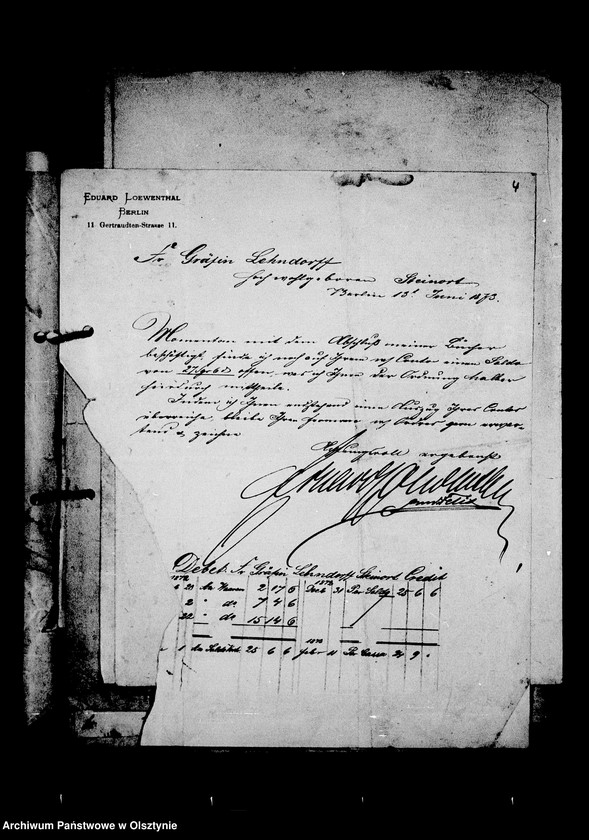 4
EDUARD LOEWENTHAL
BERLIN
11. Gertraudten-Strasse 11.
Fr. Gräfin Lehndorff
Hochwohlgeboren Steinort
Berlin 13t Juni 1873.
Momentan mit dem Abschluß meiner Bücher
beschäftigt, finde ich noch auf Ihrem Conto einen Saldo
von offen, was ich Ihnen der Ordnung halber
hierdurch mittheile.
Indem ich Ihnen umstehend einen Auszug Ihres Contos
überreiche, bleibe Ihrer
zeichne
Achtungsvoll ergebenst
Eduard Loewenthal
Debet. Fr. Gräfin Lehndorff Steinort Credit
1872 1872
6 20 An Waaren 2 17 6 Decb 31 Per Saldo 25 6 6
2 " do 7 4 6
22 " do 15 14 6
1873
1 An Saldo 25 6 6 Febr 11 Per Cassa 24 9 "
Archiwum Państwowe w Olsztynie